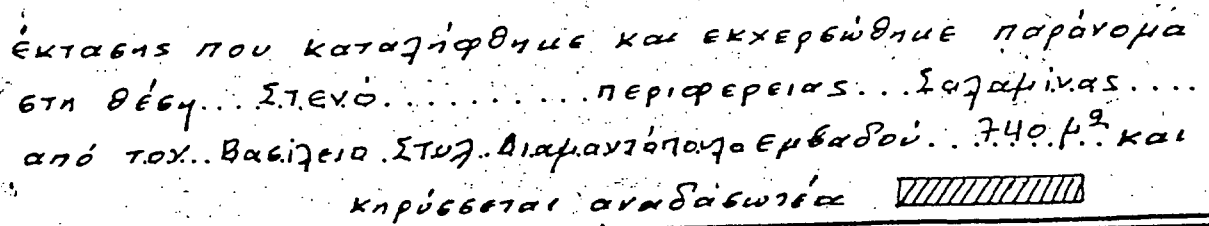 έκτασης που καταλήφθηκε και εκχερσώθηκε παράνομα
στη θέση... Στενό.......... περιφερειας... Σαλαμίνας....
από τον.. Βασίλειο Στυλ. Διαμαντόπουλο Εμβαδού.. 740 μ² και
κηρύσσεται αναδάσωτέα